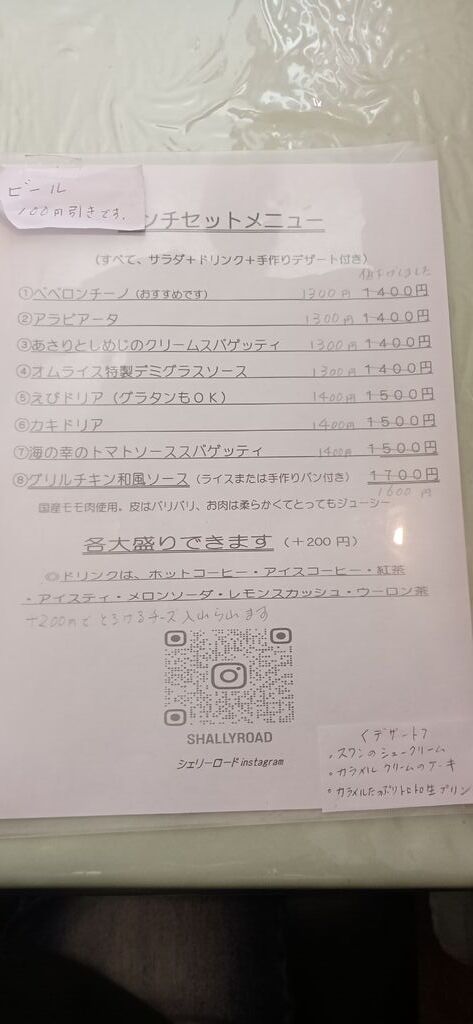 ビール
100円引きです。
ンチセットメニュー
(すべて、サラダ+ドリンク+手作りデザート付き)
値下げしました
①ペペロンチーノ (おすすめです) 1300円 1400円
②アラビアータ 1300円 1400円
③あさりとしめじのクリームスパゲッティ 1300円 1400円
④オムライス特製デミグラスソース 1300円 1400円
⑤えびドリア (グラタンもOK) 1400円 1500円
⑥カキドリア 1400円 1500円
⑦海の幸のトマトソーススパゲッティ 1400円 1500円
⑧グリルチキン和風ソース (ライスまたは手作りパン付き) 1700円
1600円
国産モモ肉使用。皮はパリパリ、お肉は柔らかくてとってもジューシー
各大盛りできます (+200円)
◎ドリンクは、ホットコーヒー・アイスコーヒー・紅茶
・アイスティ・メロンソーダ・レモンスカッシュ・ウーロン茶
+200円でとろけるチーズ入れられます
SHALLYROAD
シェリーロードinstagram
<デザート>
・スワンのシュークリーム
・カラメルクリームのケーキ
・カラメルたっぷりトロトロ生プリン